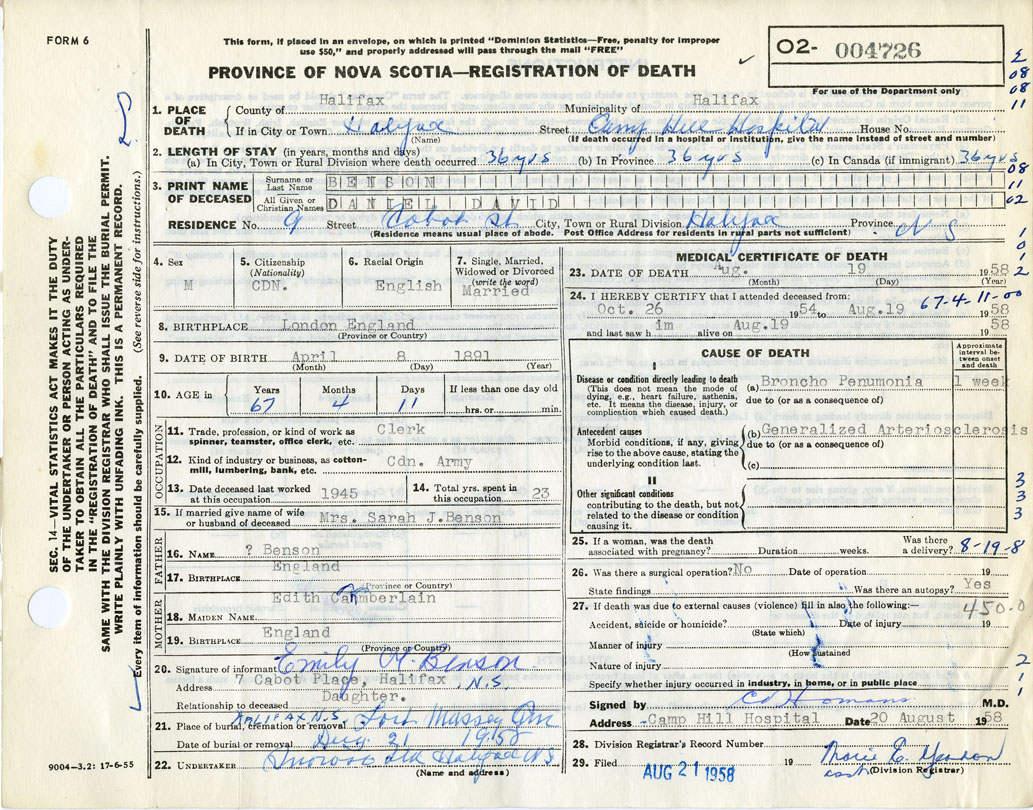 FORM 6
This form, if placed in an envelope, on which is printed "Dominion Statistics—Free, penalty for improper
use $50," and properly addressed will pass through the mail "FREE"
O2- 004726
PROVINCE OF NOVA SCOTIA—REGISTRATION OF DEATH
For use of the Department only
1. PLACE OF DEATH
County of Halifax Municipality of Halifax
If in City or Town Halifax Street Camp Hill Hospital House No.
(Name) (If death occurred in a hospital or institution, give the name instead of street and number)
2. LENGTH OF STAY (in years, months and days)
(a) In City, Town or Rural Division where death occurred 36 yrs (b) In Province 36 yrs (c) In Canada (if immigrant) 36 yrs
3. PRINT NAME OF DECEASED
Surname or Last Name BENSON
All Given or Christian Names DANIEL DAVID
RESIDENCE No. 9 Street Cabot St City, Town or Rural Division Halifax Province N S
(Residence means usual place of abode. Post Office Address for residents in rural parts not sufficient)
4. Sex M
5. Citizenship (Nationality) CDN.
6. Racial Origin English
7. Single, Married, Widowed or Divorced (write the word) Married
8. BIRTHPLACE London England
(Province or Country)
9. DATE OF BIRTH April 8 1891
(Month) (Day) (Year)
10. AGE in Years 67 Months 4 Days 11 If less than one day old hrs. or min.
OCCUPATION
11. Trade, profession or kind of work as spinner, teamster, office clerk, etc. Clerk
12. Kind of industry or business, as cotton-mill, lumbering, bank, etc. Cdn. Army
13. Date deceased last worked at this occupation 1945
14. Total yrs. spent in this occupation 23
15. If married give name of wife or husband of deceased Mrs. Sarah J.Benson
FATHER
16. NAME ? Benson
17. BIRTHPLACE England
(Province or Country)
MOTHER
18. MAIDEN NAME Edith Camberlain
19. BIRTHPLACE England
(Province or Country)
20. Signature of informant Emily M. Benson
Address 7 Cabot Place, Halifax, N.S.
Relationship to deceased Daughter.
21. Place of burial, cremation or removal HALIFAX N.S. Fort Massey Cem
Date of burial or removal Aug 21 1958
22. UNDERTAKER Snows Ltd Halifax NS
(Name and address)
MEDICAL CERTIFICATE OF DEATH
23. DATE OF DEATH Aug. 19 1958
(Month) (Day) (Year)
24. I HEREBY CERTIFY that I attended deceased from: 67-4-11-00
Oct. 26 1954 to Aug.19 1958
and last saw him alive on Aug.19 1958
CAUSE OF DEATH
Approximate interval between onset and death
I
Disease or condition directly leading to death (This does not mean the mode of dying, e.g., heart failure, asthenia, etc. It means the disease, injury, or complication which caused death.)
(a) Broncho Penumonia 1 week
due to (or as a consequence of)
Antecedent causes
Morbid conditions, if any, giving rise to the above cause, stating the underlying condition last.
(b) Generalized Arteriosclerosis
due to (or as a consequence of)
(c)
II
Other significant conditions contributing to the death, but not related to the disease or condition causing it.
25. If a woman, was the death associated with pregnancy? Duration weeks. Was there a delivery? 8-19-8
26. Was there a surgical operation? No Date of operation 19
State findings Was there an autopsy? Yes
27. If death was due to external causes (violence) fill in also the following:— 450.0
Accident, suicide or homicide? Date of injury 19
(State which)
Manner of injury
(How sustained
Nature of injury
Specify whether injury occurred in industry, in home, or in public place
Signed by M.D.
Address Camp Hill Hospital Date 20 August 1958
28. Division Registrar's Record Number
29. Filed AUG 21 1958 19
(Division Registrar)
9004—3.2: 17-6-55
SEC. 14—VITAL STATISTICS ACT MAKES IT THE DUTY
OF THE UNDERTAKER OR PERSON ACTING AS UNDER-
TAKER TO OBTAIN ALL THE PARTICULARS REQUIRED
IN THE "REGISTRATION OF DEATH" AND TO FILE THE
SAME WITH THE DIVISION REGISTRAR WHO SHALL ISSUE THE BURIAL PERMIT.
WRITE PLAINLY WITH UNFADING INK. THIS IS A PERMANENT RECORD.
Every item of information should be carefully supplied. (See reverse side for instructions.)